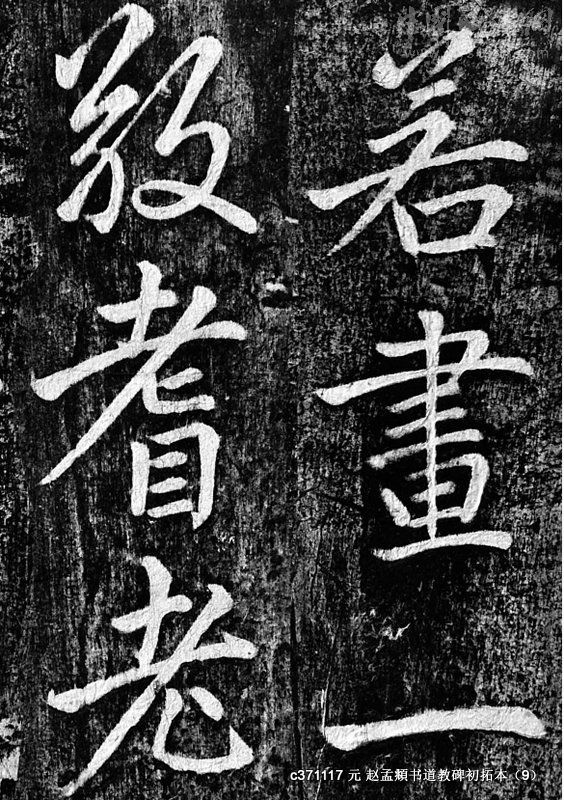 若畫一
耆老
c371117 元 赵孟頫书道教碑初拓本（9）